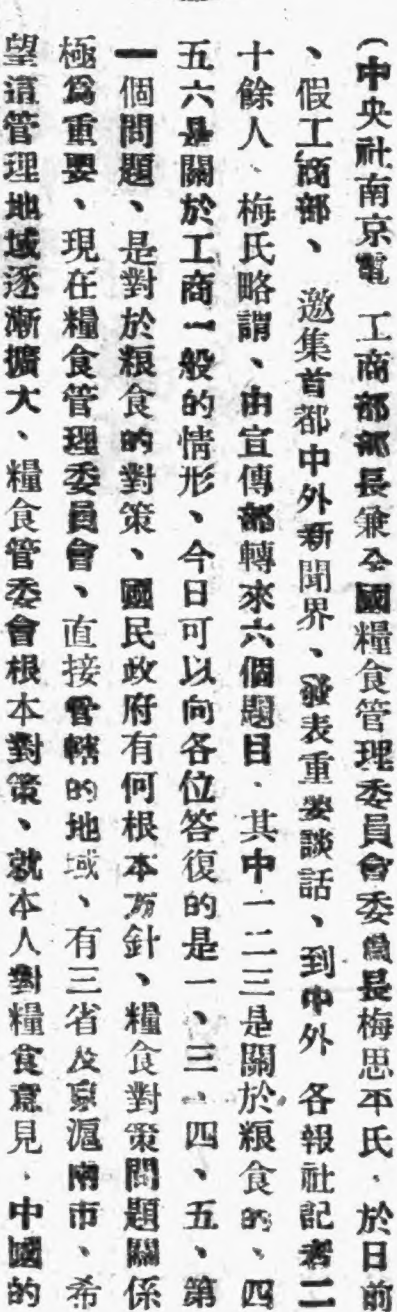 （中央社南京電　工商部部長兼全國糧食管理委員會委員長梅思平氏、於日前
、假工商部、邀集首都中外新聞界、發表重要談話、到中外各報社記者二
十餘人、梅氏略謂、由宣傳部轉來六個題目、其中一二三是關於粮食的、四
五六是關於工商一般的情形、今日可以向各位答復的是一、三、四、五、第
一個問題、是對於粮食的對策、國民政府有何根本方針、糧食對策問題關係
極爲重要、現在糧食管理委員會、直接管轄的地域、有三省及京滬兩市、希
望這管理地域逐漸擴大、糧食管委會根本對策、就本人對糧食意見、中國的